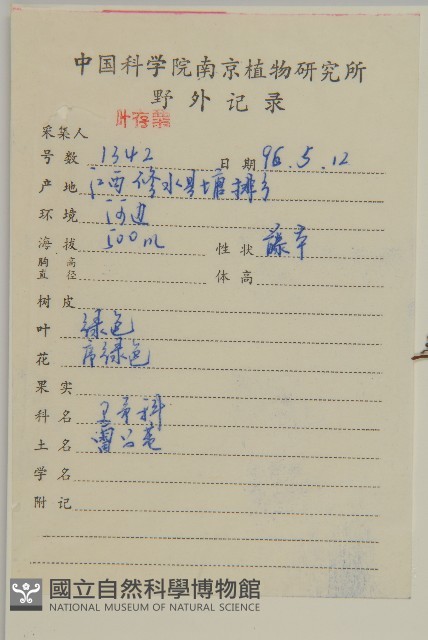 中国科学院南京植物研究所
野外记录
采集人
号数 1342 日期 96.5.12
产地 江西修水县
环境 河边
海拔 500m 性状 藤本
胸高直径 体高
树皮
叶 绿色
花 绿色
果实
科名 科
土名
学名
附记
國立自然科學博物館
NATIONAL MUSEUM OF NATURAL SCIENCE